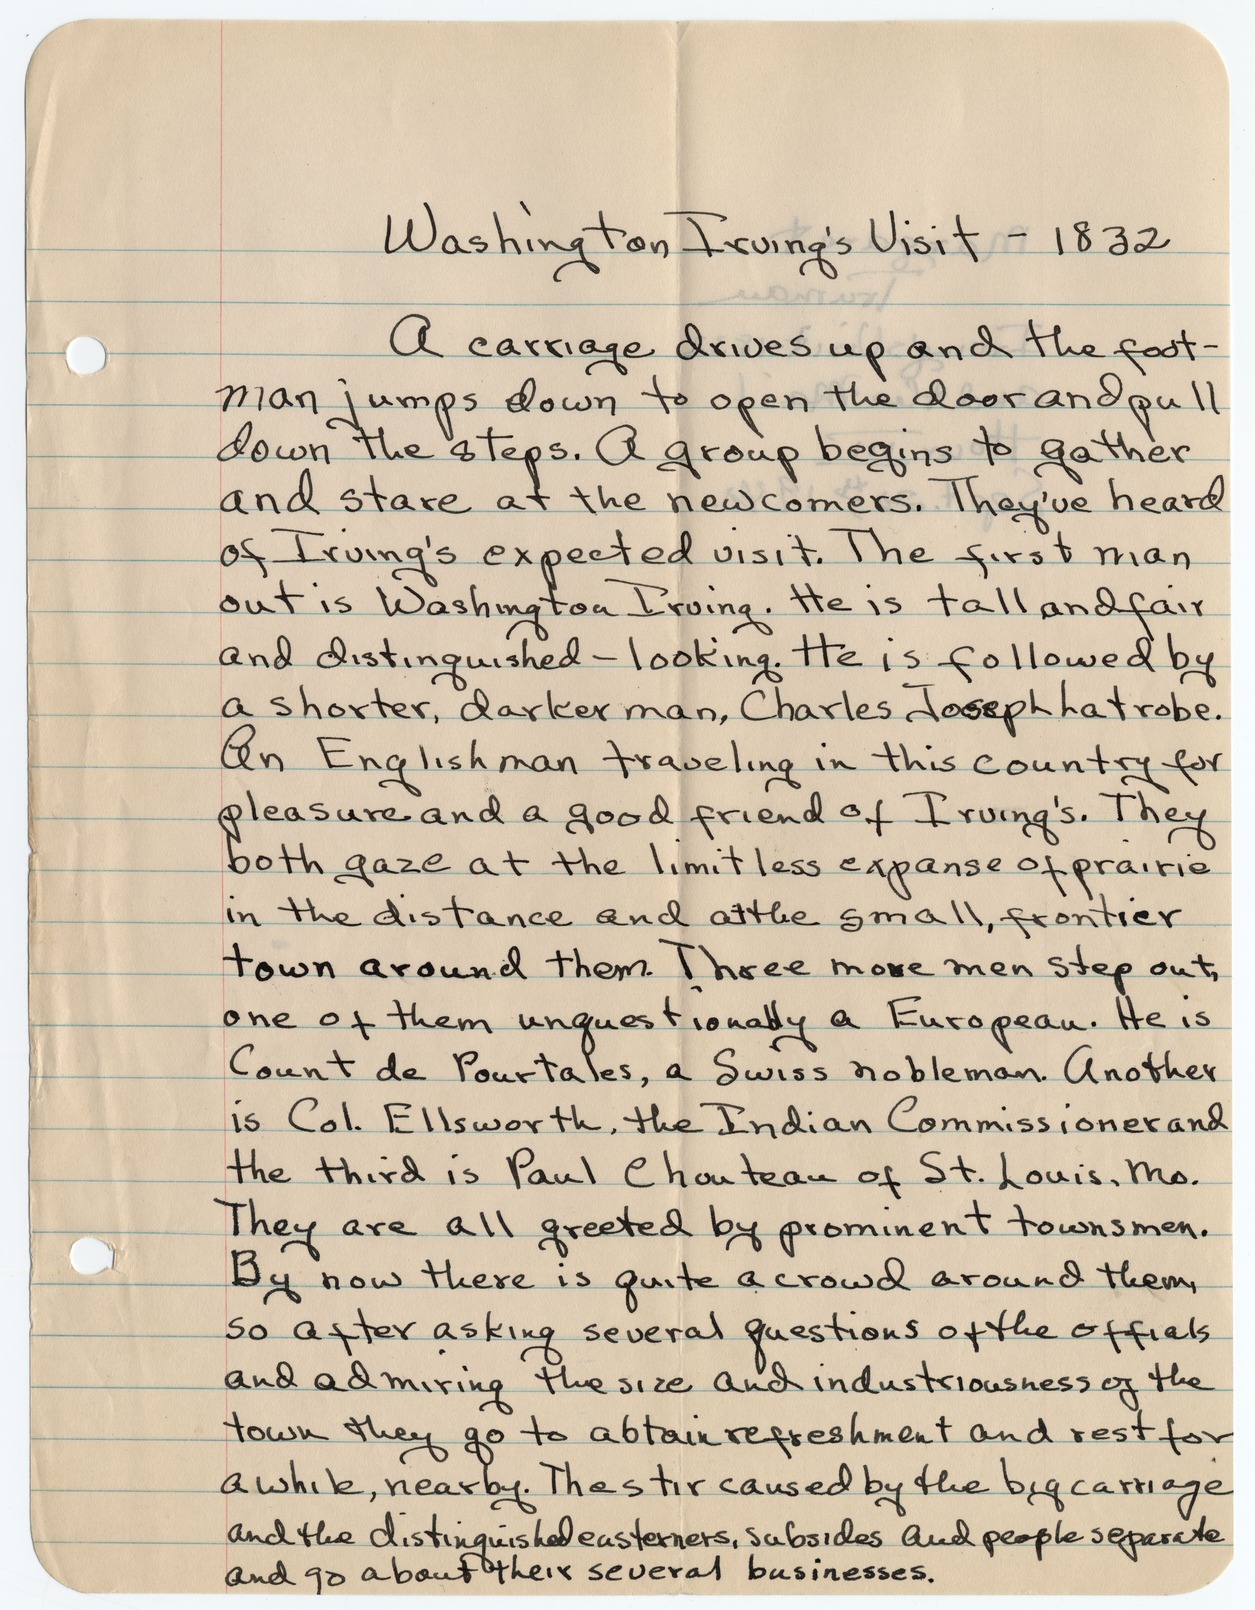 Washington Irving's Visit - 1832
A carriage drives up and the foot-
man jumps down to open the door and pull
down the steps. A group begins to gather
and stare at the newcomers. They've heard
of Irving's expected visit. The first man
out is Washington Irving. He is tall and fair
and distinguished-looking. He is followed by
a shorter, darker man, Charles Joseph Latrobe.
An Englishman traveling in this country for
pleasure and a good friend of Irving's. They
both gaze at the limitless expanse of prairie
in the distance and at the small, frontier
town around them. Three more men step out,
one of them unquestionally a European. He is
Count de Pourtales, a Swiss nobleman. Another
is Col. Ellsworth, the Indian Commissioner and
the third is Paul Chouteau of St. Louis, Mo.
They are all greeted by prominent townsmen.
By now there is quite a crowd around them,
so after asking several questions of the offials
and admiring the size and industriousness of the
town they go to obtain refreshment and rest for
a while, nearby. The stir caused by the big carriage
and the distinguished easterners, subsides and people separate
and go about their several businesses.